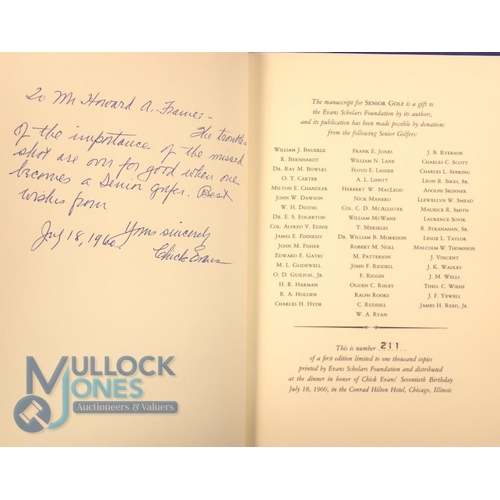 To Mr. Howard A. Frames -
The troubles
of the importance of the missed
shot are over for good when one
becomes a Senior golfer. Best
wishes from
Yours sincerely
July 18, 1960
Chick Evans
MULLOCK
JONES
Auctioneers & Valuers
The manuscript for SENIOR GOLF is a gift to
the Evans Scholars Foundation by its authors,
and its publication has been made possible by donations
from the following Senior Golfers:
WILLIAM J. BAUERLE
R. BERNHARDT
DR. RAY M. BOWLES
O. T. CARTER
MILTON E. CHANDLER
JOHN W. DAWSON
W. H. DIDDEL
DR. E. S. EDGERTON
COL. ALFRED V. EDNIE
JAMES E. FOGERTY
JOHN M. FISHER
EDWARD E. GATES
M. L. GLIDEWELL
O. D. GUILFOIL, JR.
H. R. HARMAN
R. A. HOLDEN
CHARLES H. HYDE
FRANK E. JONES
WILLIAM N. LANE
FLOYD E. LASSER
A. L. LOVITT
HERBERT W. MACLEOD
NICK MANERO
COL. C. D. MCALLISTER
WILLIAM MCWANE
T. MEKJELES
DR. WILLIAM B. MORRISON
ROBERT M. NOLL
M. PATTERSON
JOHN F. RIDDELL
F. RIGGIN
OGDEN C. RISLEY
RALPH ROOKE
C. RUDDELL
W. A. RYAN
J. B. RYERSON
CHARLES C. SCOTT
CHARLES L. SEBRING
LEON R. SIKES, SR.
ADOLPH SKINNER
LLEWELLYN W. SMEAD
MAURICE R. SMITH
LAURENCE SOVIK
R. STRANAHAN, SR.
LESLIE L. TAYLOR
MALCOLM W. THOMPSON
J. VINCENT
J. K. WADLEY
J. M. WELLS
THEO. C. WIEHE
J. F. YEWELL
JAMES H. REED, JR.
This is number 211
of a first edition limited to one thousand copies
printed by Evans Scholars Foundation and distributed
at the dinner in honor of Chick Evans' Seventieth Birthday
July 18, 1960, in the Conrad Hilton Hotel, Chicago, Illinois